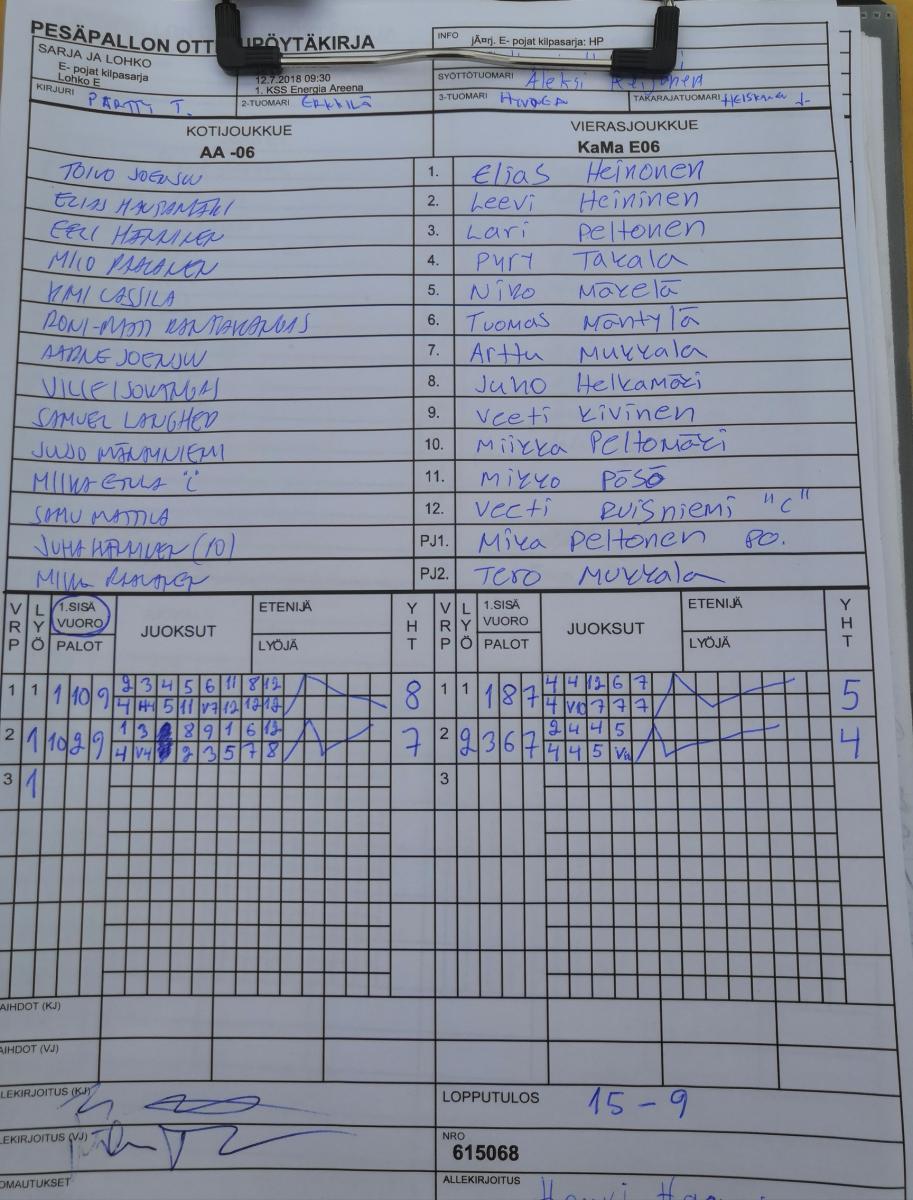 PESÄPALLON OTT PÖYTÄKIRJA
SARJA JA LOHKO
E- pojat kilpasarja
Lohko E
12.7.2018 09:30
1. KSS Energia Areena
INFO jÃ¤rj. E- pojat kilpasarja: HP
SYÖTTÖTUOMARI Aleksi
KIRJURI PARTTI T. 2-TUOMARI ERKKILÄ 3-TUOMARI TAKARAJATUOMARI
KOTIJOUKKUE VIERASJOUKKUE
AA -06 KaMa E06
TOIVO JOENSUU 1. Elias Heinonen
ELIAS HAUTAMÄKI 2. Leevi Heininen
EELI HÄNNINEN 3. Lari Peltonen
MILO RAAKANEN 4. Pyry Takala
KIMI LASSILA 5. Niko Mäkelä
RONI-MATTI RANTAKANGAS 6. Tuomas Mäntylä
AARNE JOENSUU 7. Arttu Mukkala
VILLE 8. Juho Helkamäki
SAMUEL LANGHED 9. Veeti Kivinen
10. Miikka Peltomäki
MIIKA "C" 11. Mikko Pösö
SAMU MATTILA 12. Veeti Ruisniemi "C"
JUHA HÄNNINEN (10) PJ1. Mika Peltonen PO.
MIKA RAAKANEN PJ2. Tero Mukkala
VRP LYÖ 1.SISÄ VUORO PALOT JUOKSUT ETENIJÄ LYÖJÄ YHT VRP LYÖ 1.SISÄ VUORO PALOT JUOKSUT ETENIJÄ LYÖJÄ YHT
1 1 1 10 9 2 3 4 5 6 11 8 12 8 1 1 1 8 7 4 4 12 6 7 5
4 5 11 V7 12 12 12 4 V10 7 7 7
2 1 10 2 9 1 3 8 9 1 6 12 7 2 2 3 6 7 2 4 4 5 4
4 V4 2 3 5 7 8 4 4 5
3 1 3
AIHDOT (KJ)
AIHDOT (VJ)
LEKIRJOITUS (KJ) LOPPUTULOS 15 - 9
LEKIRJOITUS (VJ) NRO
615068
OMAUTUKSET ALLEKIRJOITUS